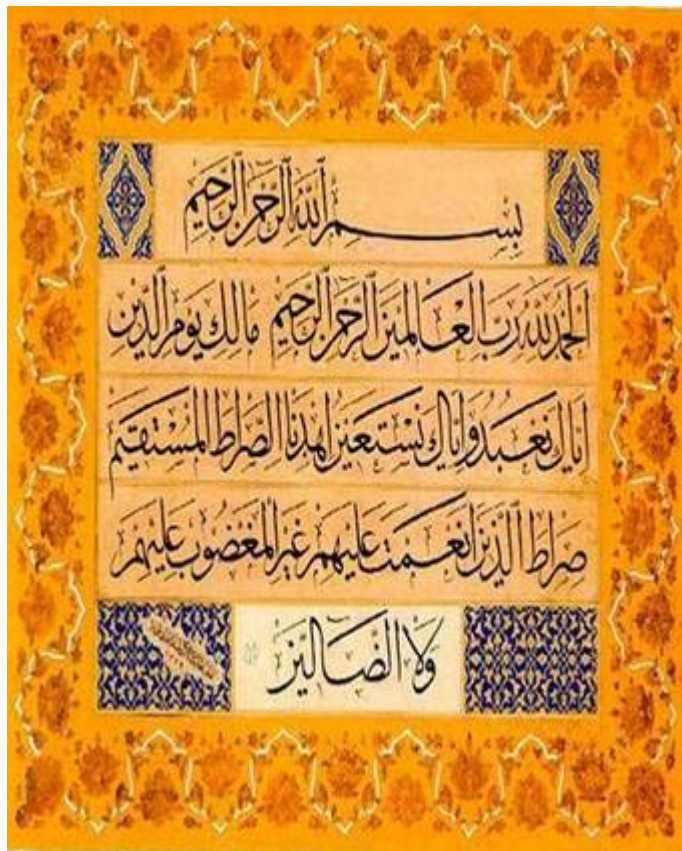 بِسْمِ ٱللَّهِ ٱلرَّحْمَٰنِ ٱلرَّحِيمِ
الْحَمْدُ لِلَّهِ رَبِّ الْعَالَمِينَ الرَّحْمَٰنِ الرَّحِيمِ مَالِكِ يَوْمِ الدِّينِ
إِيَّاكَ نَعْبُدُ وَإِيَّاكَ نَسْتَعِينُ اهْدِنَا الصِّرَاطَ الْمُسْتَقِيمَ
صِرَاطَ الَّذِينَ أَنْعَمْتَ عَلَيْهِمْ غَيْرِ الْمَغْضُوبِ عَلَيْهِمْ
وَلَا الضَّالِّينَ